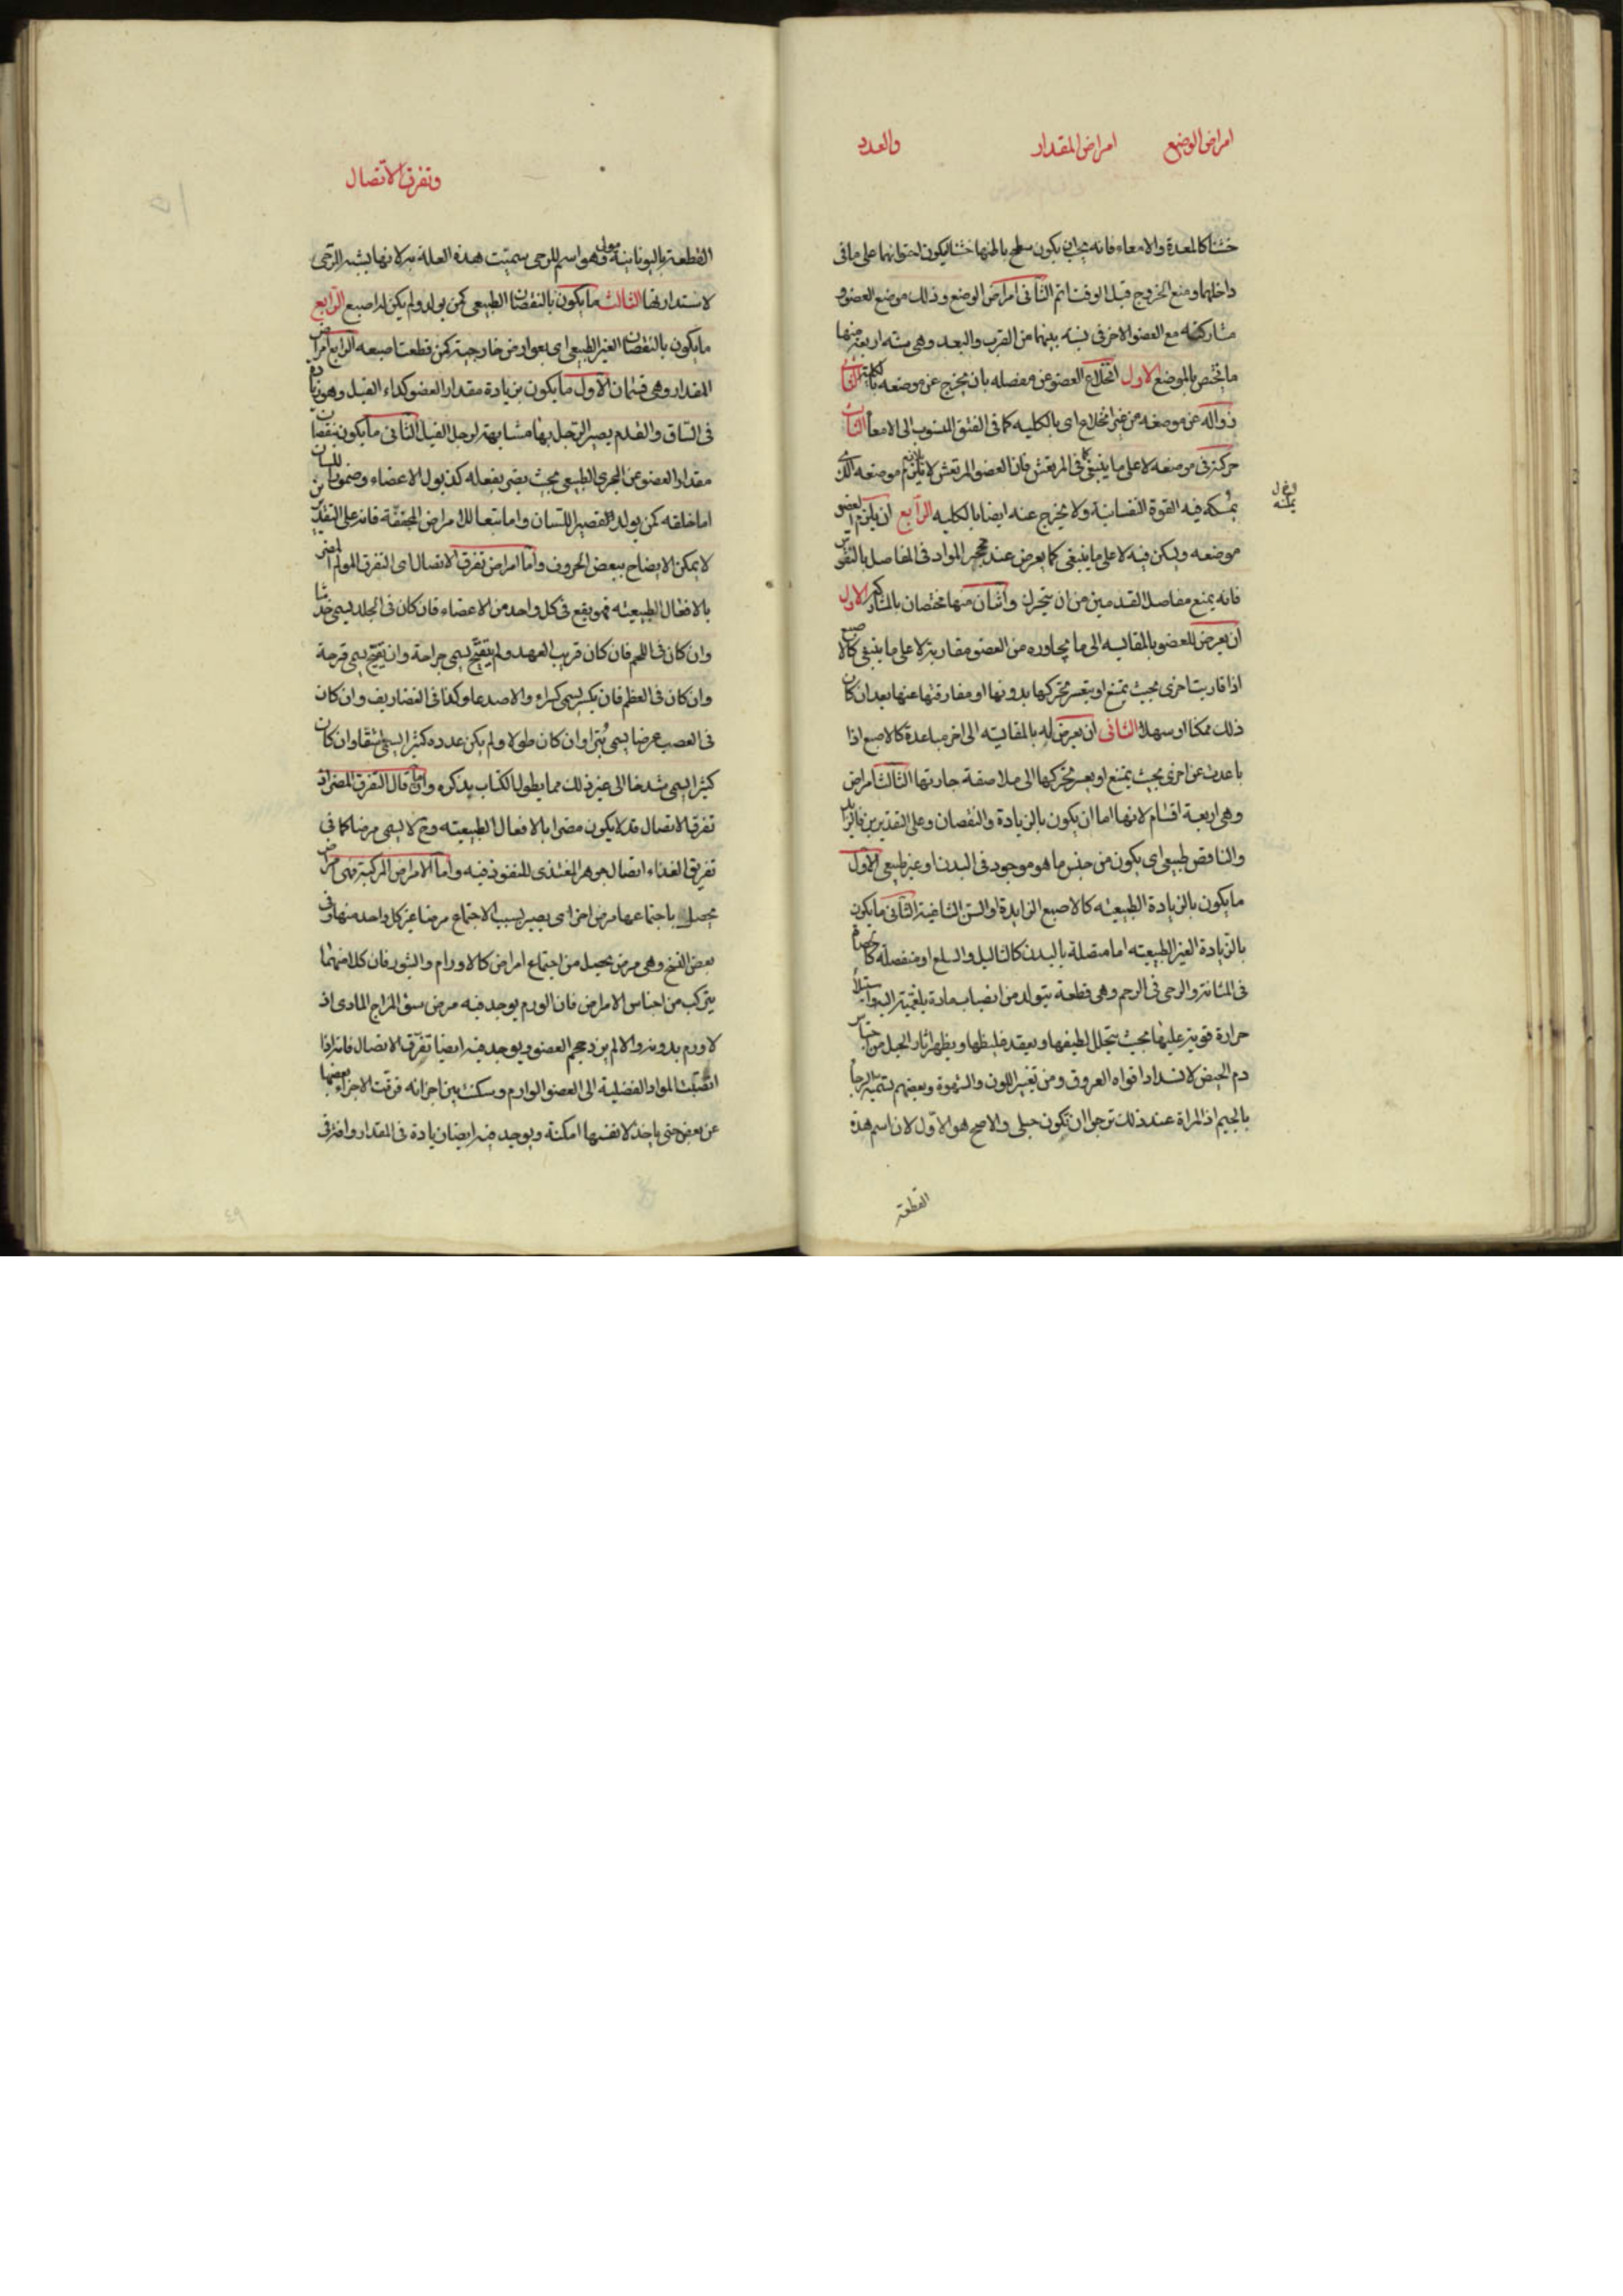 امراض الوضع امراض المقدار والعدد
خشنا كالمعدة والامعاء فانه يجب ان يكون سطح باطنها خشنا ليكون احتوائهما على ما فى
داخلهما ومنع الخروج قبل الوقت اتم الثانى امراض الوضع وذلك موضع العضو و
مشاركته مع العضو الاخر فى نسبة بينهما من القرب والبعد وهى ستة اربعة منها
ما يختص بالموضع الاول انخلاع العضو عن مفصله بان يخرج عن موضعه بالكلية الثانى
زواله عن موضعه من غير انخلاع اى بالكليه كما فى الفتق المنسوب الى الامعاء الثالث
حركته فى موضعه لا على ما ينبغى كما فى المرتعش فان العضو المرتعش لا يلازم موضعه الذى
يمسكه فيه القوة النفسانية ولا يخرج عنه ايضا بالكليه الرابع ان يلزم العضو
موضعه ويسكن فيه لا على ما ينبغى كما يعرض عند تحجر المواد فى المفاصل بالنقرس
فانه يمنع مفاصل القدمين من ان يتحرك واثنان منها مختصان بالمشاركة الاول
ان يعرض للعضو بالمقايسه الى ما يجاوره من العضو مقاربته لا على ما ينبغى كالاصبع
اذا قاربت اخرى بحيث يمتنع او يتعسر تحركها بدونها او مفارقتها عنها بعد ان كان
ذلك ممكنا او سهلا الثانى ان يعرض له بالمقايسه الى اخر مباعدة كالاصبع اذا
باعدت عن اخرى بحيث يمتنع او يعسر تحركها الى ملاصقة جارتها الثالث امراض
وهى اربعة اقسام لانها اما ان يكون بالزيادة والنقصان وعلى التقديرين فالزائد
والناقص طبيعى اى يكون من جنس ما هو موجود فى البدن او غير طبيعى الاول
ما يكون بالزيادة الطبيعيه كالاصبع الزايدة او السن الشاغية الثانى ما يكون
بالزيادة الغير الطبيعيه اما متصلة بالبدن كالثاليل والسلع او منفصلة كالحصاة
فى المثانة والرحى فى الرحم وهى قطعة يتولد من انصباب مادة بلغمية اليه واستيلاء
حرارة قوية عليها بحيث يتحلل لطيفها ويعقد غليظها ويظهر اثار الحبل من احتباس
دم الحيض لانسداد افواه العروق ومن تغير اللون والشهوة وبعضهم يسميه بالرجا
بالجيم اذ المراة عند ذلك ترجوا ان تكون حبلى والاصح هو الاول لان اسم هذه
القطعة
يمكنه
وتفرق الاتصال
القطعة باليونانية مولى وهو اسم للرحى سميت هذه العلة به لانها يشبه الرحى
لاستدارتها الثالث ما يكون بالنقصان الطبيعى كمن يولد ولم يكن له اصبع الرابع
ما يكون بالنقصان الغير الطبيعى اى بعوارض خارجية كمن قطعت اصبعه الرابع امراض
المقدار وهى قسمان الاول ما يكون بزيادة مقدار العضو كداء الفيل وهو زيادة
فى الساق والقدم يصير الرجل بها مشابهة لرجل الفيل الثانى ما يكون بنقصان
مقدار العضو عن المجرى الطبيعى بحيث يضر بفعله كذبول الاعضاء وضمور اللسان
اما خلقة كمن يولد القصير اللسان واما تبعا للامراض المجففة فانه على التقديرين
لا يمكن الايضاح ببعض الحروف واما امراض تفرق الاتصال اى التفرق المولم المضر
بالافعال الطبيعيه فهو يقع فى كل واحد من الاعضاء فان كان فى الجلد يسمى خدشا
وان كان فى اللحم فان كان قريب العهد ولم يتقيح يسمى جراحة وان تقيح يسمى قرحة
وان كان فى العظم فان يكسر يسمى كسرا والا صدعا وكذا فى الغضاريف وان كان
فى العصب عرضا يسمى بترا وان كان طولا ولم يكن عدده كثيرا يسمى شقا وان كان
كثيرا يسمى شدخا الى غير ذلك مما يطول الكتاب بذكره وانما قال التفرق المضر اذ
تفرق الاتصال قد لا يكون مضرا بالافعال الطبيعيه وح لا يسمى مرضا كما فى
تفريق الغذاء اتصال جوهر المغتذى للنفوذ فيه واما الامراض المركبة فهى امراض
يحصل باجتماعها مرض اخر اى يصير بسبب الاجتماع مرضا غير كل واحد منها وفى
بعض النسخ وهى مرض يحصل من اجتماع امراض كالاورام والبثور فان كلا منهما
يتركب من اجناس الامراض فان الورم يوجد فيه مرض سوء المزاج المادى اذ
لا ورم بدونه والا لم يزد حجم العضو ويوجد فيه ايضا تفرق الاتصال فانه اذا
انصبت المواد الفضلية الى العضو الوارم وسكنت بين اجزائه فرقت الاجزاء بعضها
عن بعض حتى ياخذ لانفسها امكنة ويوجد فيه ايضا زيادة فى المقدار وافة فى
٤٩